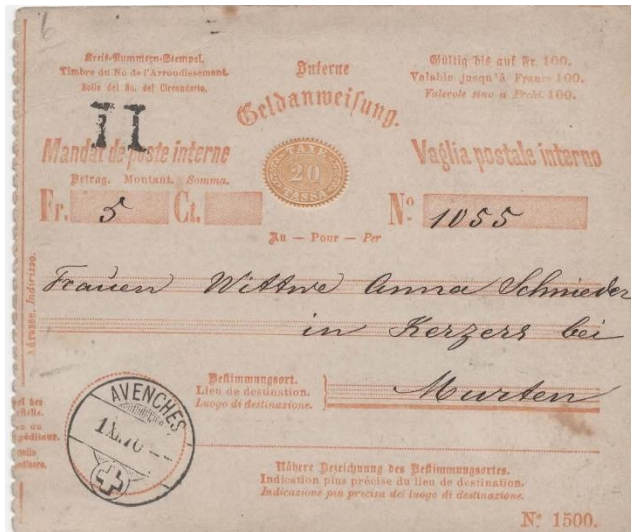 6
Kreis-Nummern-Stempel.
Timbre du No de l'Arrondissement.
Bollo del No. del Circondario.
II
Interne
Geldanweisung.
Gültig bis auf Fr. 100.
Valable jusqu'à Francs 100.
Valevole sino a Frchi. 100.
Mandat de poste interne
TAXE
20
TASSA
Vaglia postale interno
Betrag. Montant. Somma.
Fr. 5 Ct.
No 1055
An — Pour — Per
Adresse. Indirizzo.
Frauen Wittwe Anna Schnieder
in Kerzers bei
Bestimmungsort.
Lieu de destination.
Luogo di destinazione.
Murten
AVENCHES
1 XI. 70
Nähere Bezeichnung des Bestimmungsortes.
Indication plus précise du lieu de destination.
Indicazione più precisa del luogo di destinazione.
No 1500.